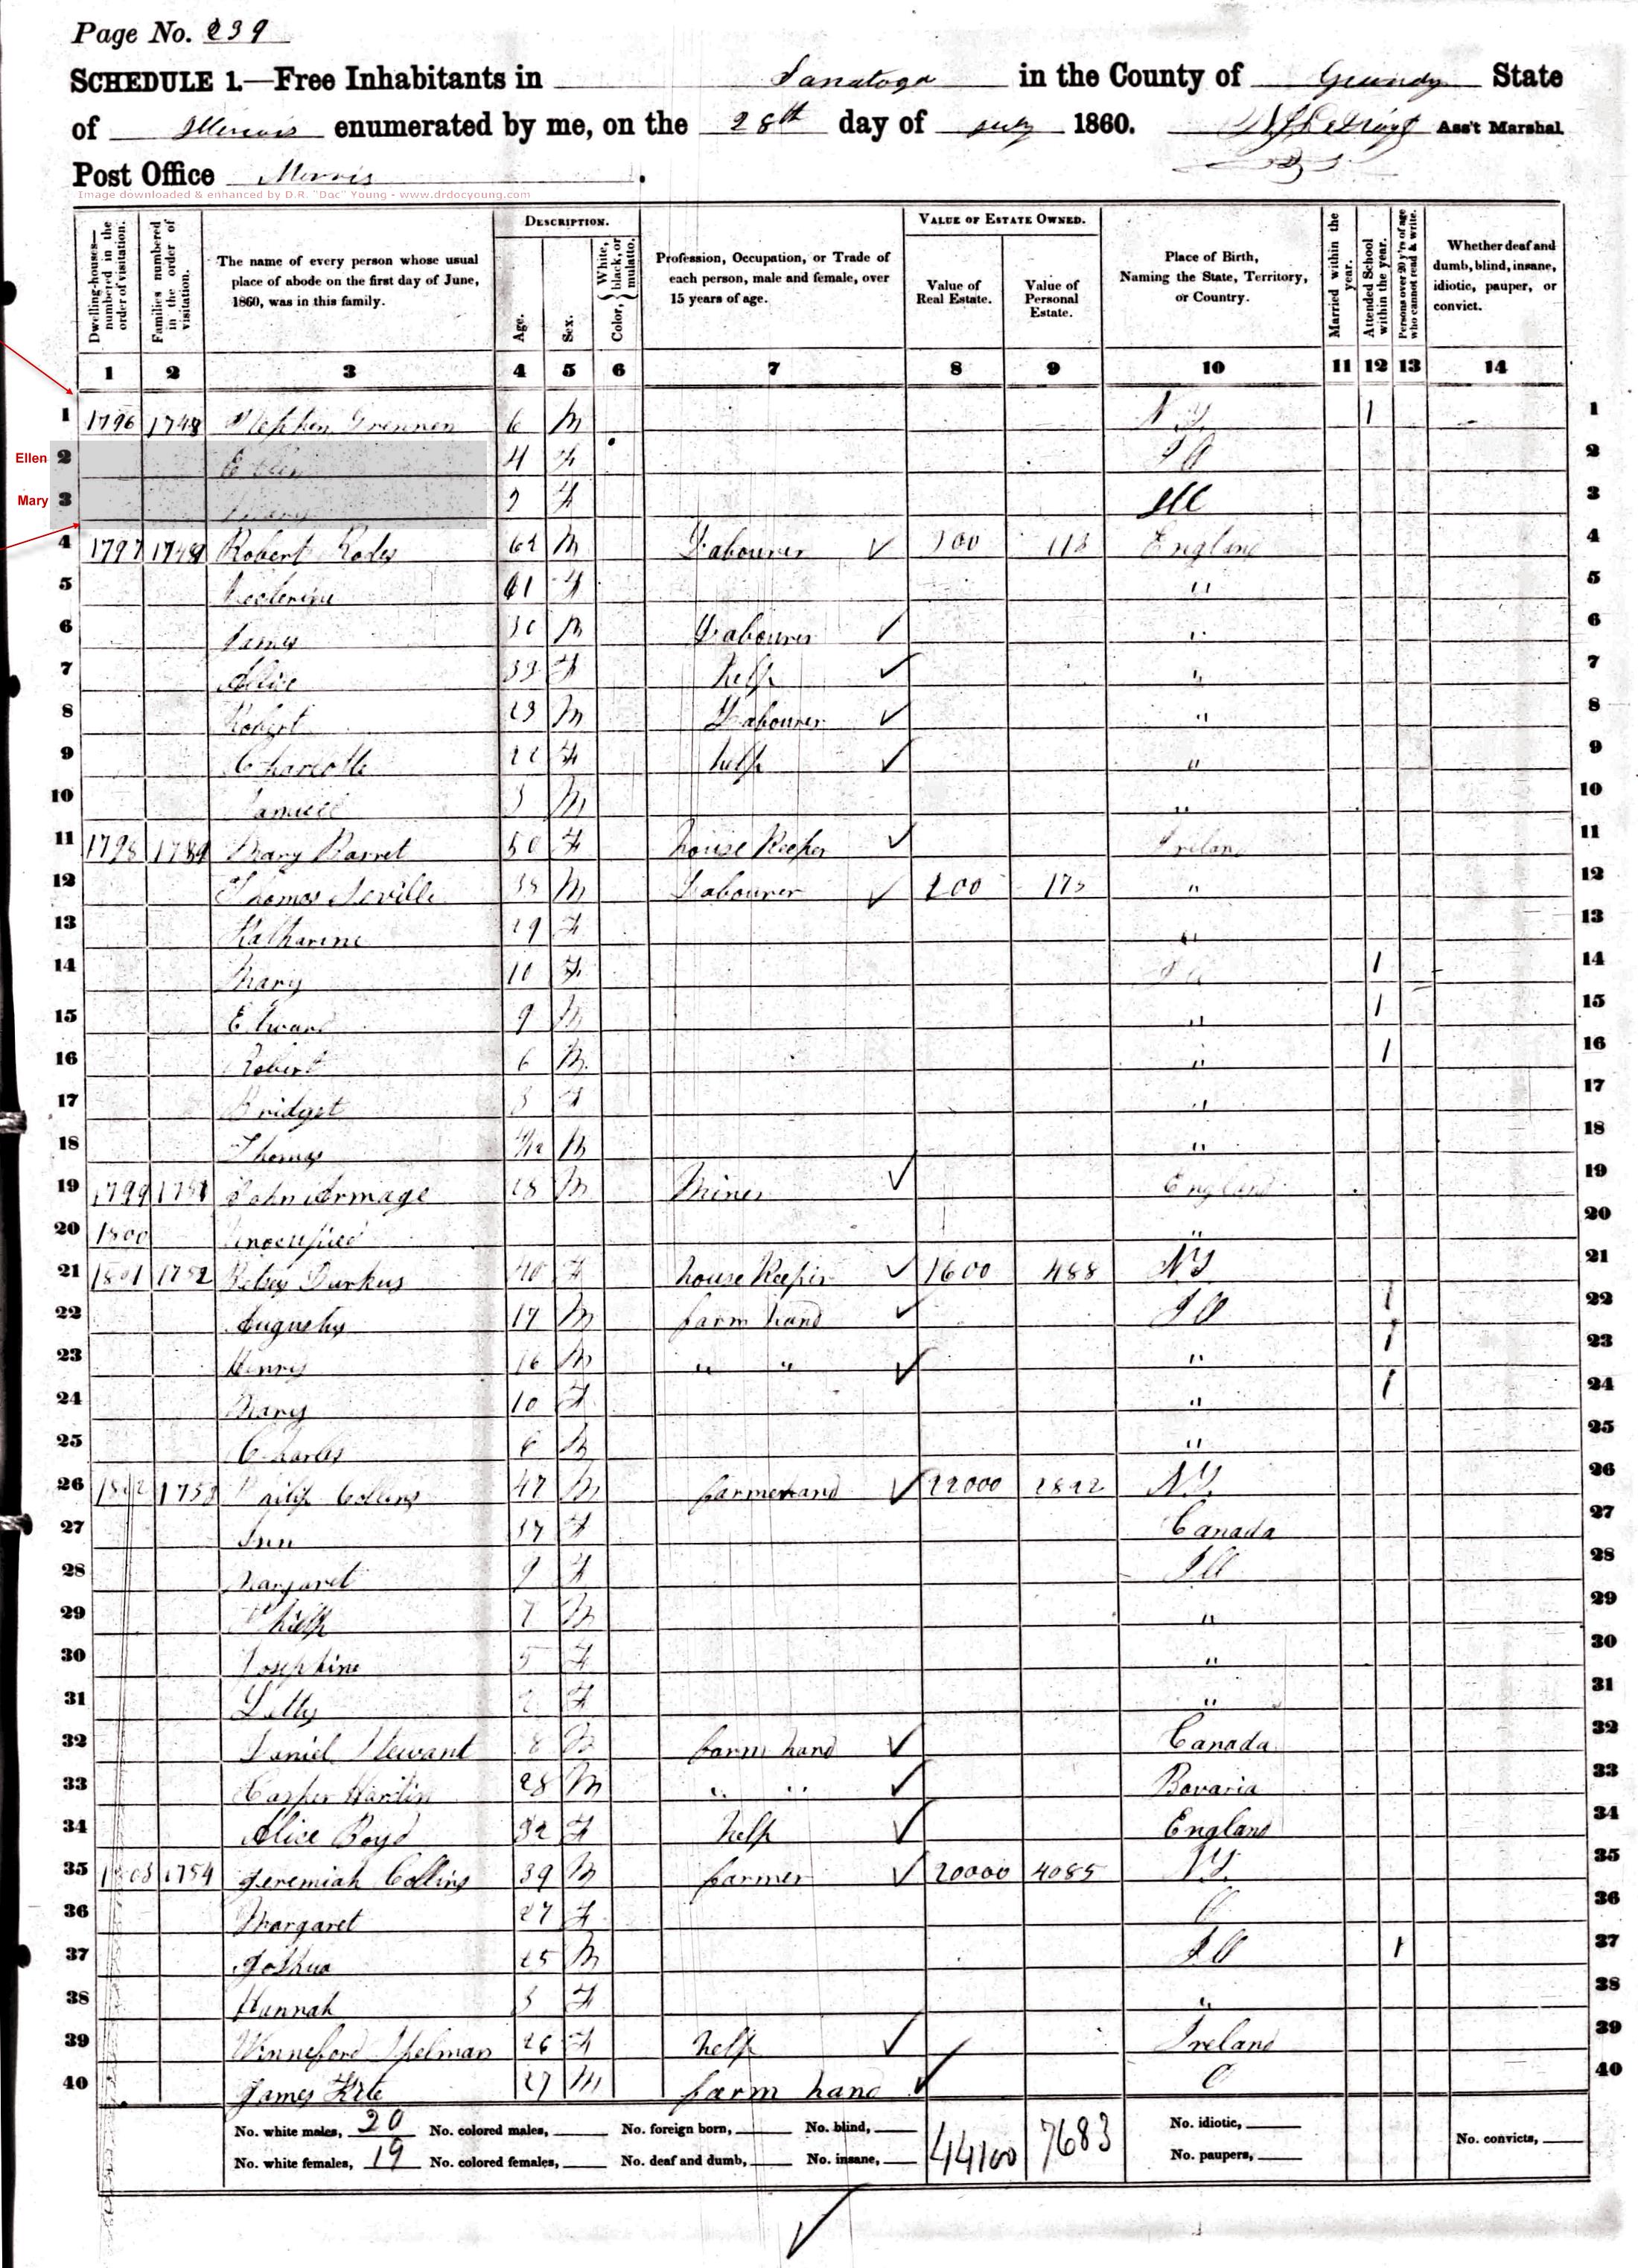 Page No. 239
SCHEDULE 1.—Free Inhabitants in Saratoga in the County of Grundy State
of Illinois enumerated by me, on the 28th day of July 1860. Ass't Marshal.
Post Office Morris.
Image downloaded & enhanced by D.R. "Doc" Young - www.drdocyoung.com
Dwelling-houses—numbered in the order of visitation.
Families numbered in the order of visitation.
The name of every person whose usual place of abode on the first day of June, 1860, was in this family.
DESCRIPTION.
Age.
Sex.
Color, White, black, or mulatto.
Profession, Occupation, or Trade of each person, male and female, over 15 years of age.
VALUE OF ESTATE OWNED.
Value of Real Estate.
Value of Personal Estate.
Place of Birth, Naming the State, Territory, or Country.
Married within the year.
Attended School within the year.
Persons over 20 y'rs of age who cannot read & write.
Whether deaf and dumb, blind, insane, idiotic, pauper, or convict.
1 2 3 4 5 6 7 8 9 10 11 12 13 14
1 1796 1748 Stephen Grennen 6 M N.Y. 1 1
Ellen 2 Ellen 4 F Ill 2
Mary 3 Mary 2 F Ill 3
4 1797 1749 Robert 62 M Labourer 113 England 4
5 61 F " 5
6 James M Labourer " 6
7 Alice 33 F help " 7
8 Robert 23 M Labourer " 8
9 Charlotte 22 F help " 9
10 Samuel 3 M " 10
11 1798 Mary Barret 50 F house Keeper Ireland 11
12 Thomas 35 M Labourer 200 175 " 12
13 Katharine 29 F " 13
14 Mary 10 F Ill 1 14
15 Edward 9 M " 1 15
16 Robert 6 M " 1 16
17 Bridget 3 F " 17
18 Thomas M " 18
19 1799 1751 John Armage 28 M Miner England 19
20 1800 Unoccupied " 20
21 1801 1752 Betsey Durkus 40 F house Keeper 1600 488 NY 21
22 17 M farm hand Ill 1 22
23 Henry 16 M " " " 1 23
24 Mary 10 F " 1 24
25 Charles 6 M " 25
26 1802 1753 Collins 47 M 22000 2822 N.Y. 26
27 Ann 37 F Canada 27
28 Margaret 9 F Ill 28
29 Philip 7 M " 29
30 Josephine 5 F " 30
31 Letty 2 F " 31
32 Daniel Stewart M farm hand Canada 32
33 Casper Hardin 28 M " " Bavaria 33
34 Alice Boyd 32 F help England 34
35 1803 1754 Jeremiah Collins 39 M farmer 20000 4085 N.Y. 35
36 Margaret 27 F O 36
37 Joshua 25 M Ill 1 37
38 Hannah 3 F " 38
39 Winneford Spelman 26 F help Ireland 39
40 James Kite 27 M farm hand O 40
No. white males, 20 No. colored males, No. foreign born, No. blind, 44100 7683 No. idiotic,
No. white females, 19 No. colored females, No. deaf and dumb, No. insane, No. paupers, No. convicts,